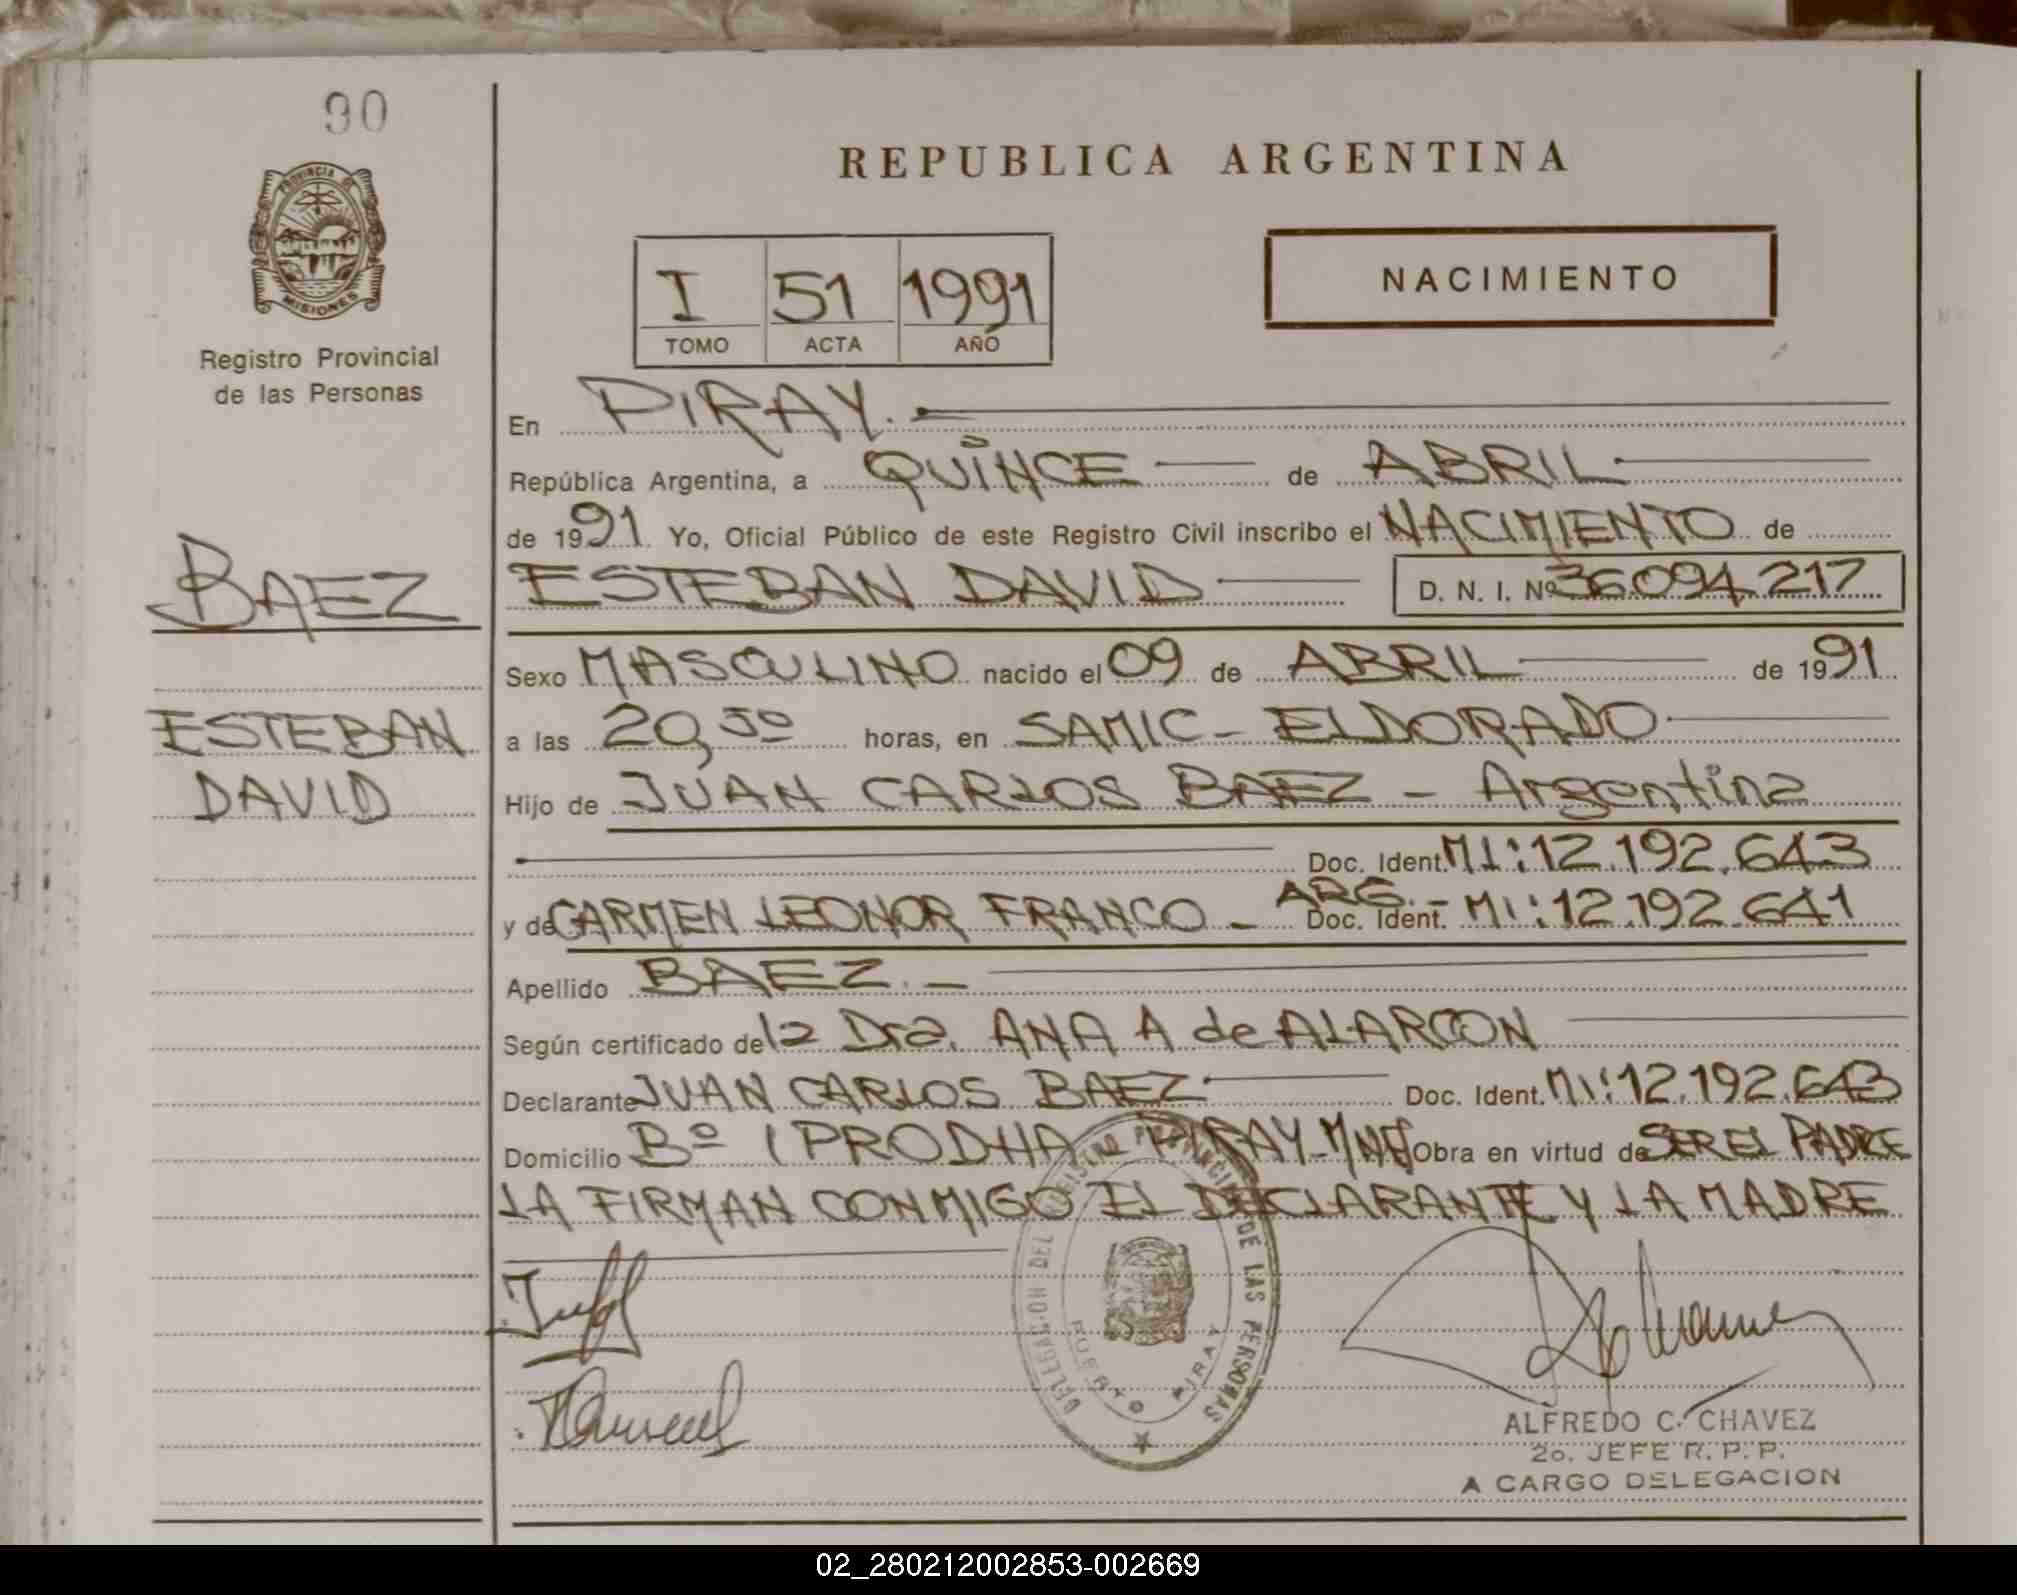 90
PROVINCIA DE
MISIONES
Registro Provincial
de las Personas
BAEZ
ESTEBAN
DAVID
REPUBLICA ARGENTINA
I 51 1991
TOMO ACTA AÑO
NACIMIENTO
En PIRAY.
República Argentina, a QUINCE de ABRIL
de 1991 Yo, Oficial Público de este Registro Civil inscribo el NACIMIENTO de
ESTEBAN DAVID D. N. I. Nº 36.094.217
Sexo MASCULINO nacido el 09 de ABRIL de 1991
a las 20,50 horas, en SAMIC - ELDORADO
Hijo de JUAN CARLOS BAEZ - Argentina
Doc. Ident. MI: 12.192.643
y de CARMEN LEONOR FRANCO - ARG. - Doc. Ident. MI: 12.192.641
Apellido BAEZ. -
Según certificado de la Dra. ANA A de ALARCON
Declarante JUAN CARLOS BAEZ Doc. Ident. MI: 12.192.643
Domicilio Bº IPRODHA PIRAY-MNES Obra en virtud de SER EL PADRE
LA FIRMAN CONMIGO EL DECLARANTE Y LA MADRE
DELEGACION DEL REGISTRO PROVINCIAL DE LAS PERSONAS
PUERTO PIRAY
ALFREDO C. CHAVEZ
2o. JEFE R. P. P.
A CARGO DELEGACION
02_280212002853-002669